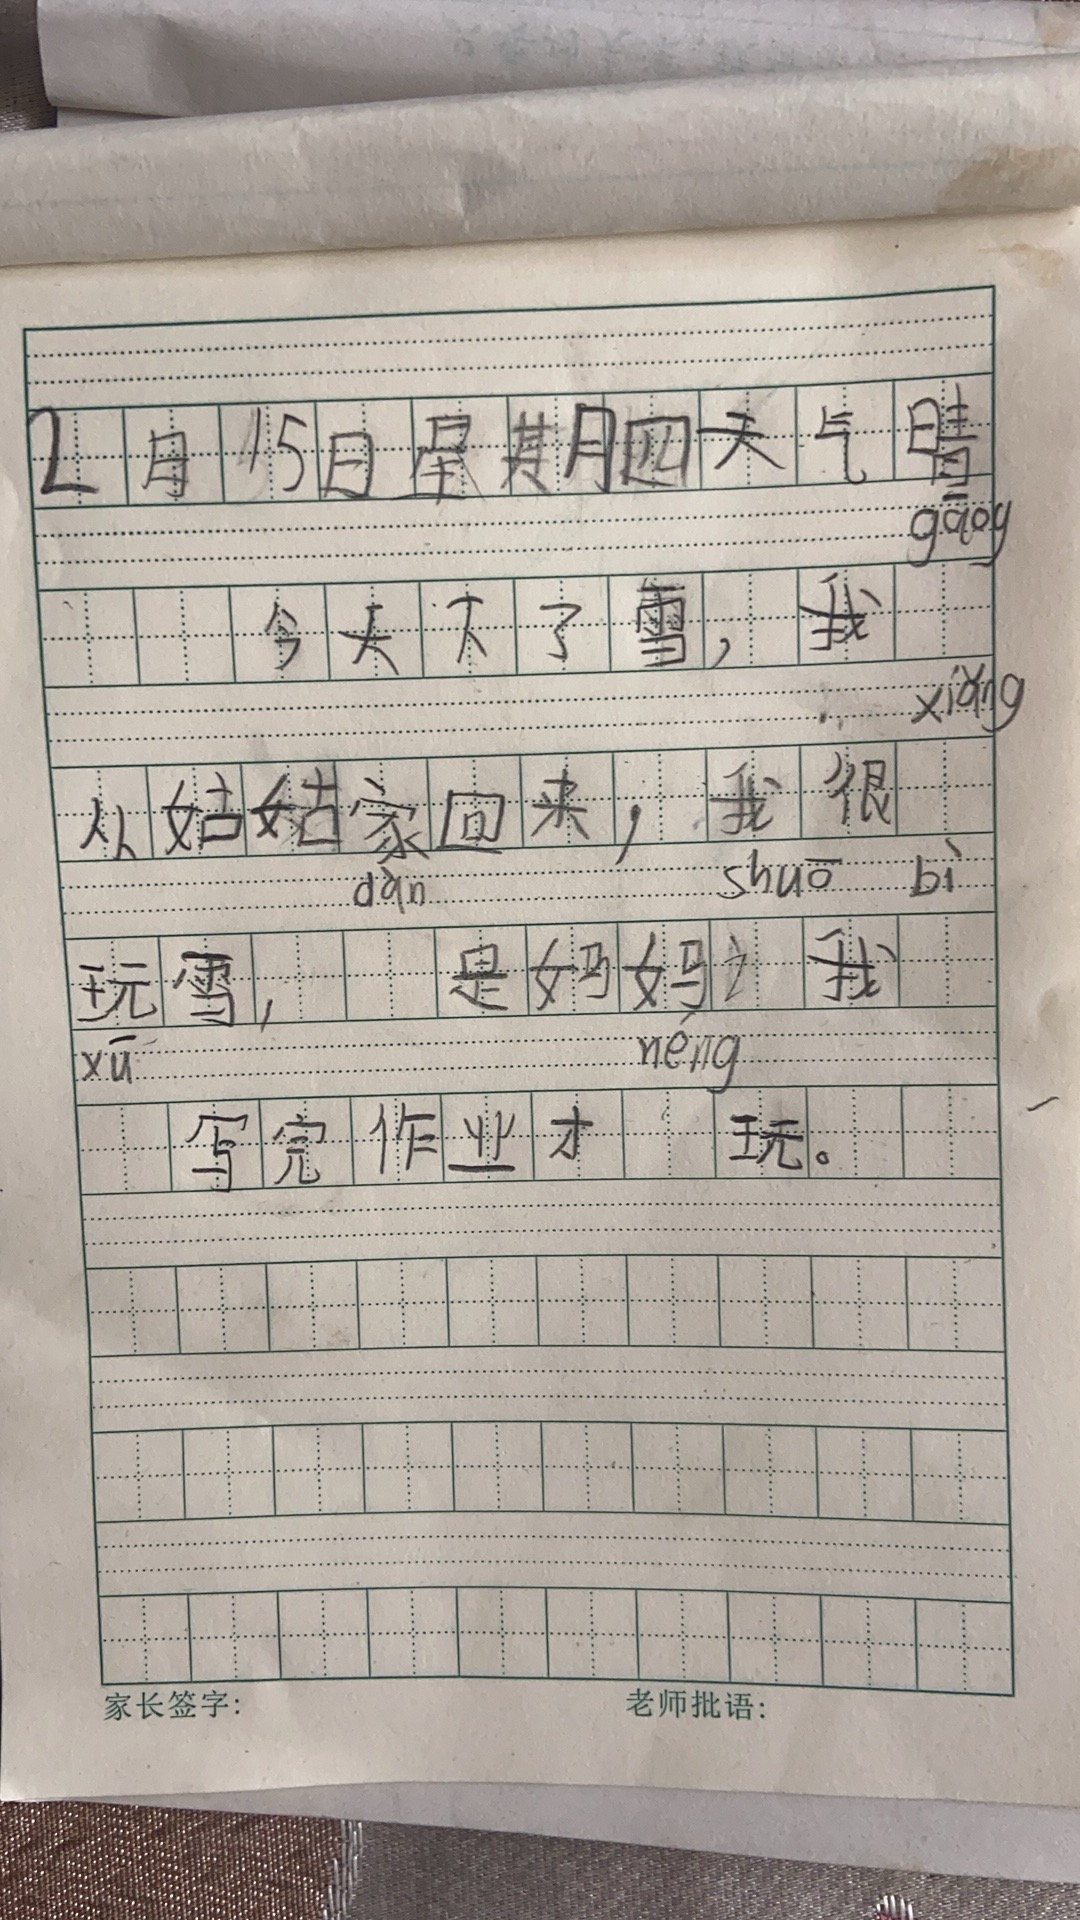 2月15日星其月四天气晴
gāoy
今天下了雪，我
xiǎng
从姑姑家回来，我很
dàn shuō bì
玩雪，是妈妈 我
xū néng
写完作业才 玩。
家长签字: 老师批语: